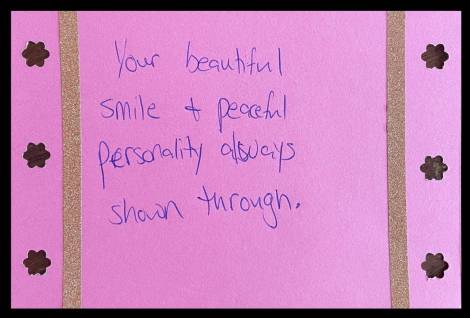 Your beautiful
smile + peaceful
personality always
shown through.